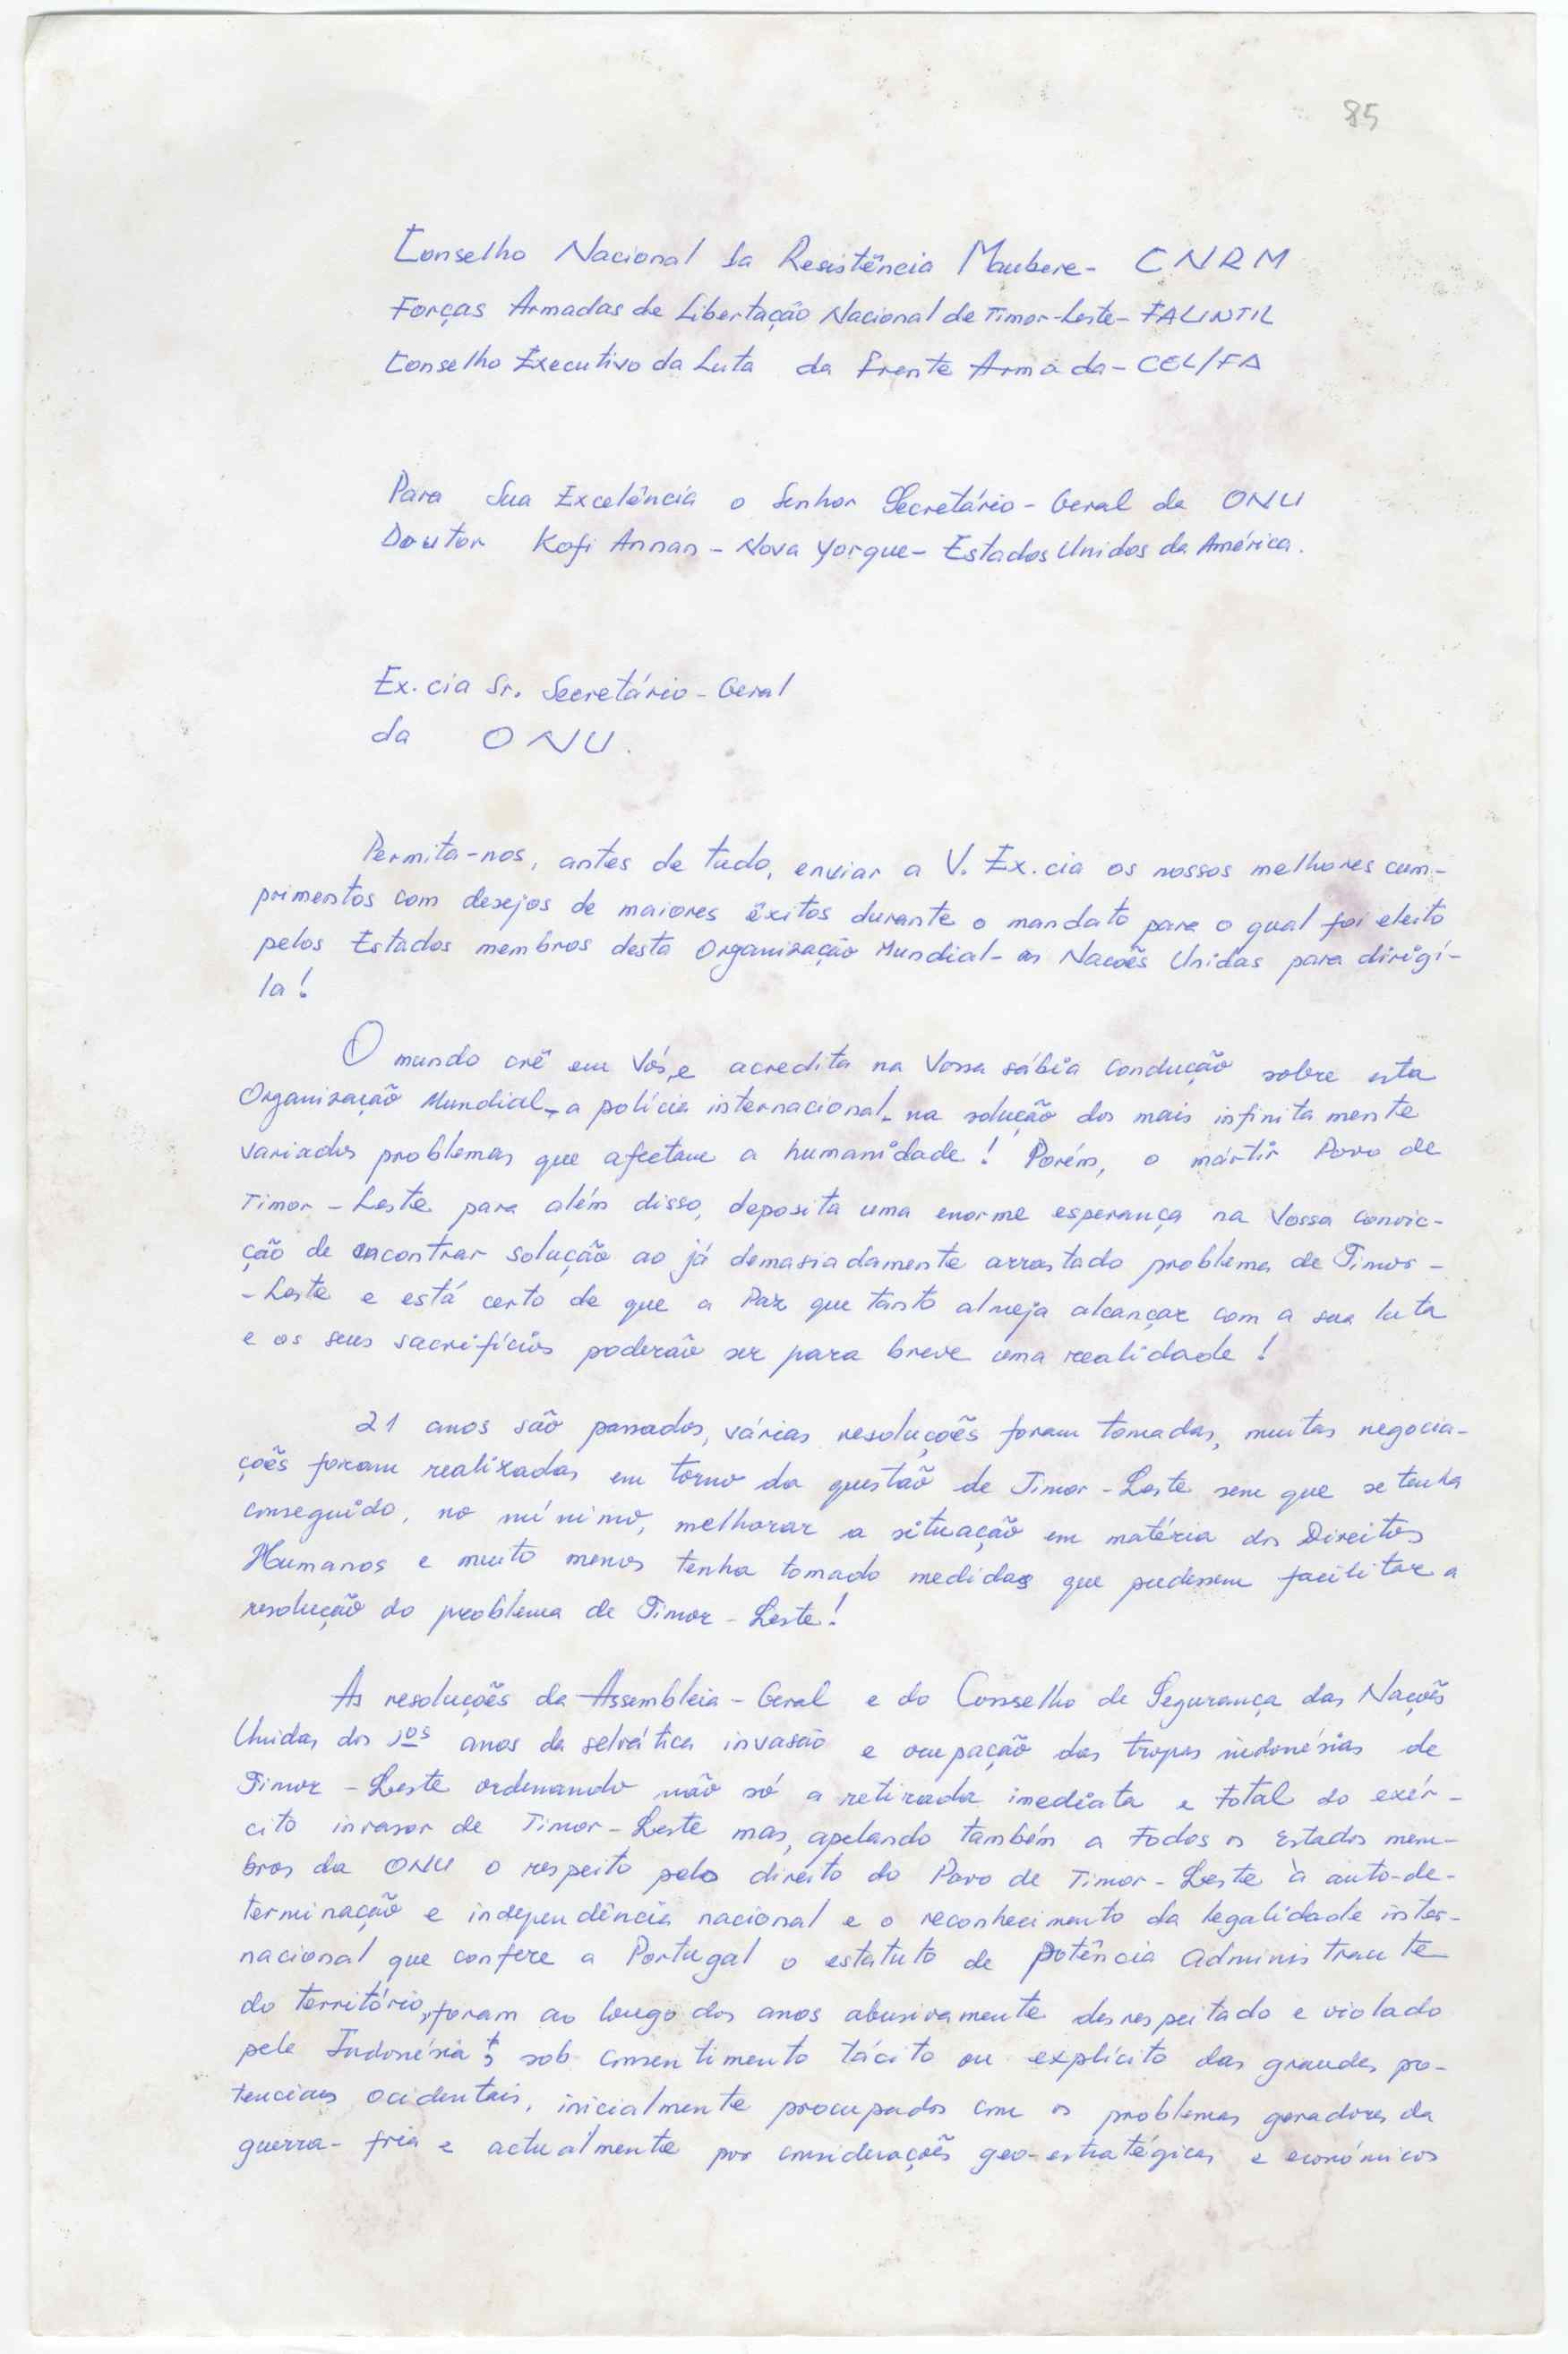 85
Conselho Nacional da Resistência Maubere - CNRM
Forças Armadas de Libertação Nacional de Timor-Leste - FALINTIL
Conselho Executivo da Luta da Frente Armada - CEL/FA
Para Sua Excelência o Senhor Secretário-Geral da ONU
Doutor Kofi Annan - Nova Yorque - Estados Unidos da América.
Ex.cia Sr. Secretário-Geral
da ONU.
Permita-nos, antes de tudo, enviar a V. Ex.cia os nossos melhores cum-
primentos com desejos de maiores êxitos durante o mandato para o qual foi eleito
pelos Estados membros desta Organização Mundial - as Nacões Unidas para dirigí-
la!
O mundo crê em Vós, e acredita na Vossa sábia condução sobre esta
Organização Mundial - a polícia internacional - na solução dos mais infinitamente
variados problemas que afectam a humanidade! Porém, o mártir Povo de
Timor-Leste para além disso, deposita uma enorme esperança na Vossa convic-
ção de encontrar solução ao já demasiadamente arrastado problema de Timor-
-Leste e está certo de que a Paz que tanto almeja alcançar com a sua luta
e os seus sacrifícios poderão ser para breve uma realidade!
21 anos são passados, várias resoluções foram tomadas, muitas negocia-
ções foram realizadas em torno da questão de Timor-Leste sem que se tenha
conseguido, no mínimo, melhorar a situação em matéria dos Direitos
Humanos e muito menos tenha tomado medidas que pudessem facilitar a
resolução do problema de Timor-Leste!
As resoluções da Assembleia-Geral e do Conselho de Segurança das Nações
Unidas dos 1os anos da selvática invasão e ocupação das tropas indonésias de
Timor-Leste ordenando não só a retirada imediata e total do exér-
cito invasor de Timor-Leste mas, apelando também a todos os Estados mem-
bros da ONU o respeito pelo direito do Povo de Timor-Leste à auto-de-
terminação e independência nacional e o reconhecimento da legalidade inter-
nacional que confere a Portugal o estatuto de potência Administrante
do território, foram ao longo dos anos abusivamente desrespeitado e violado
pela Indonésia sob consentimento tácito ou explícito das grandes po-
tencias ocidentais, inicialmente procupados com os problemas geradores da
guerra-fria e actualmente por considerações geo-estratégicas e económicos